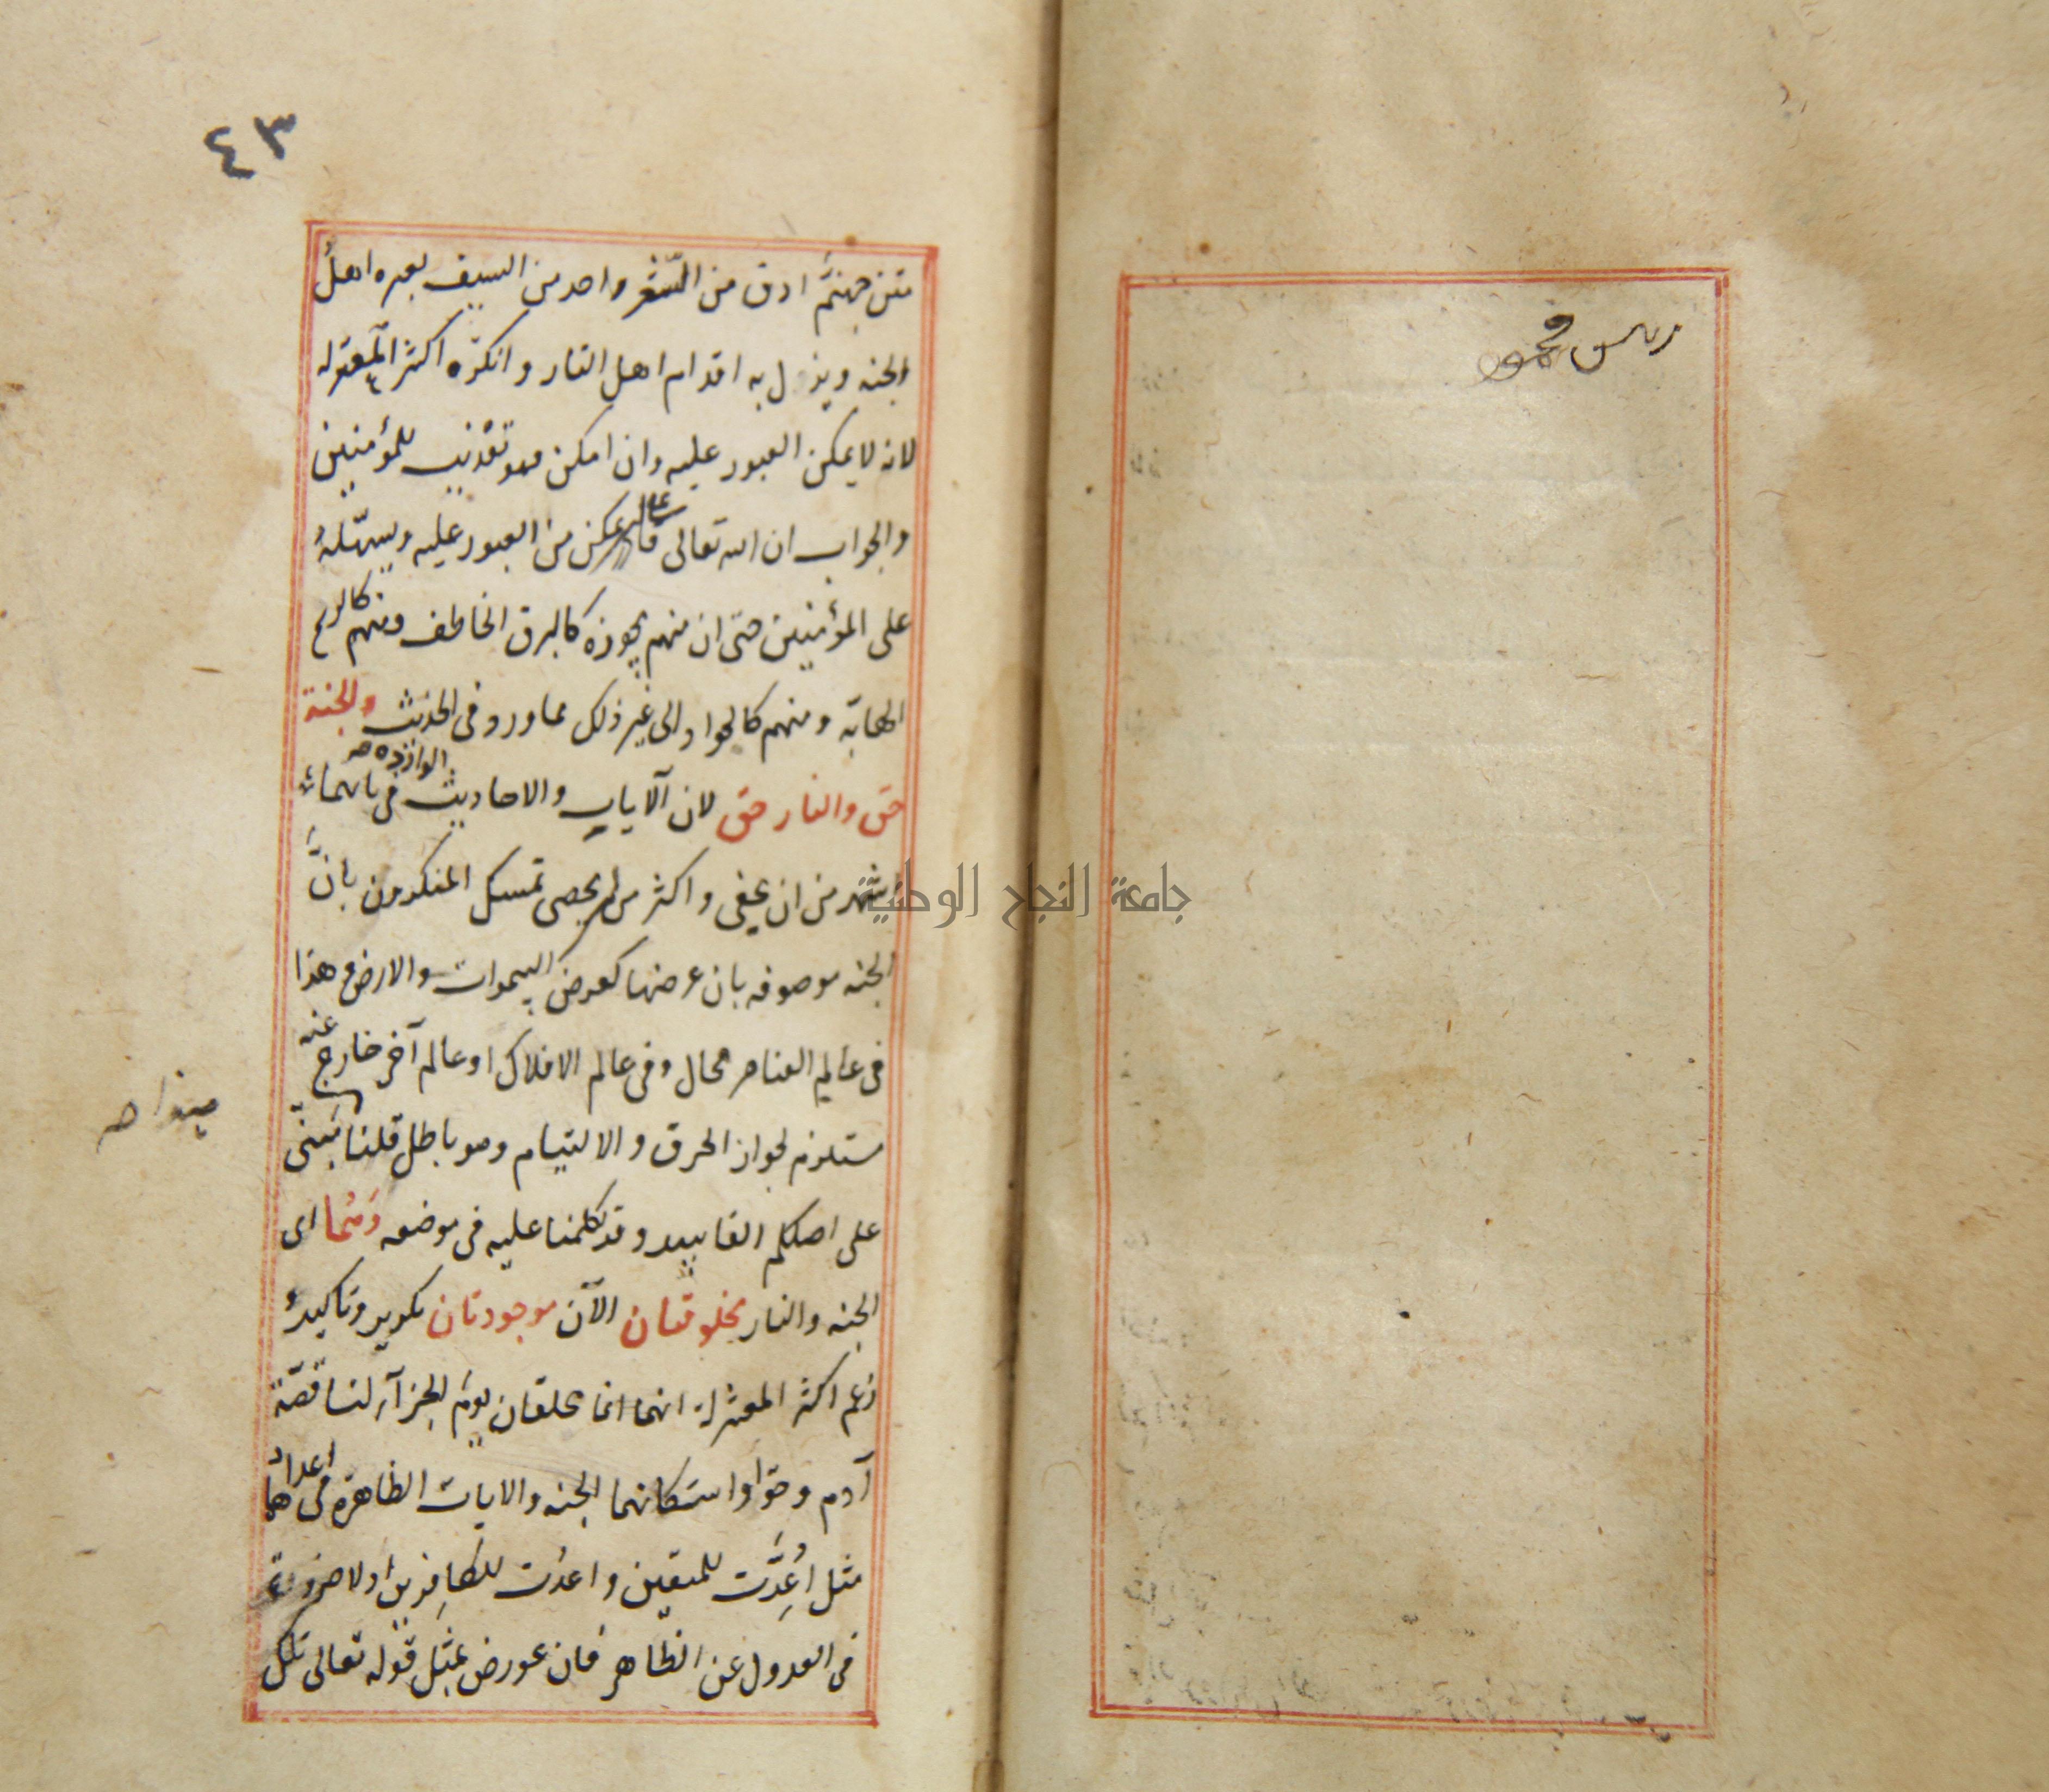 ٤٣
متن جهنم ادق من الشعر واحد من السيف يعبره اهل
الجنه ويزل به اقدام اهل النار وانكره اكثر المعتزله
لانه لا يمكن العبور عليه وان امكن فهو تعذيب للمؤمنين
والجواب ان الله تعالى قادر على ان يمكن من العبور عليه ويسهله
على المؤمنين حتى ان منهم يجوزه كالبرق الخاطف ومنهم كالريح
الهابة ومنهم كالجواد الى غير ذلك مما ورد فى الحديث والجنة
حق والنار حق لان الآيات والاحاديث الوارده فى اثباتهما
اشهر من ان يخفى واكثر من ان يحصى تمسك المنكرون بان
الجنه موصوفه بان عرضها كعرض السموات والارض وهذا
فى عالم العناصر محال وفى عالم الافلاك او عالم آخر خارج عنه
مستلزم لجواز الخرق والالتيام وهو باطل قلنا مبنى
على اصلكم الفاسد وقد تكلمنا عليه فى موضعه وهما اى
الجنه والنار مخلوقتان الآن موجودتان تكرير وتاكيد
زعم اكثر المعتزلة انهما انما تخلقان يوم الجزآء لنا قصة
آدم وحوا واسكانهما الجنه والايات الظاهره فى اعدادهما
مثل اُعِدَّت للمتقين واعدت للكافرين اذ لا ضرورة
فى العدول عن الظاهر فان عورض بمثل قوله تعالى تلك
جامعة النجاح الوطنية